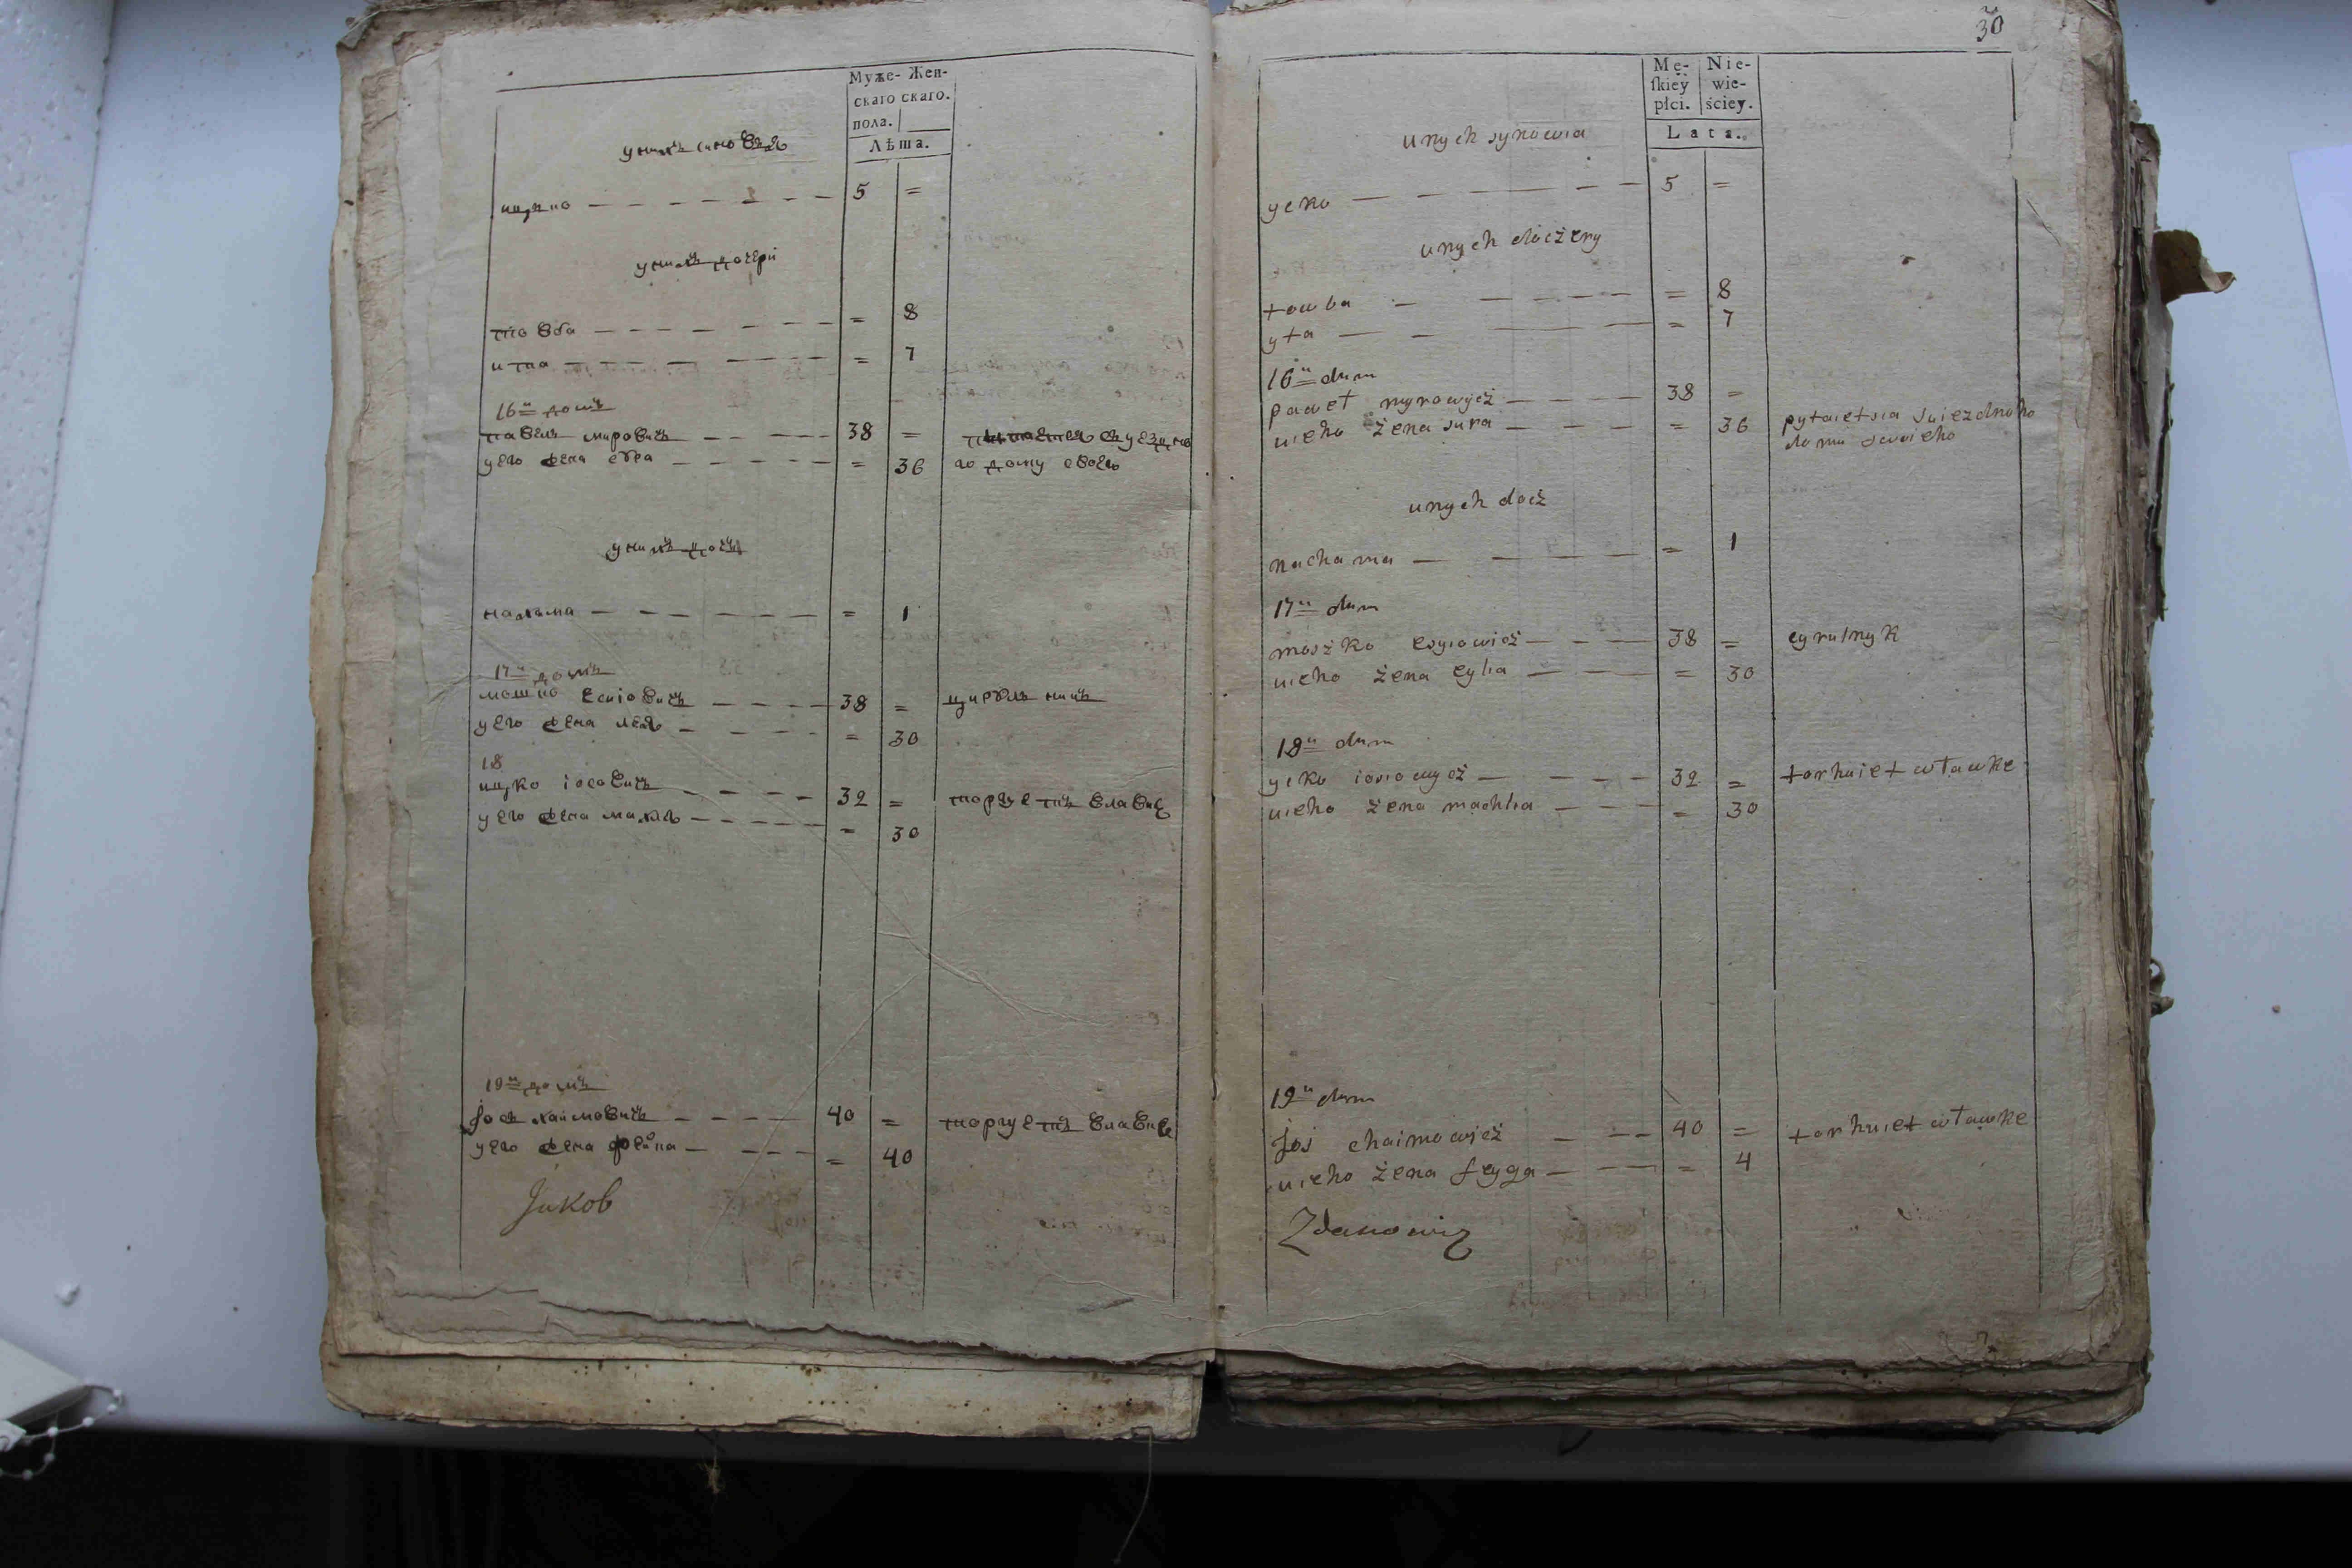 Муже- Жен-
скаго скаго.
пола.
Лѣта.
унихъ синовья
ицко — — — — — 5 =
унихъ дочери
товба — — — — — = 8
ита — — — — — = 7
16й домъ
павелъ мировичъ — — — 38 = питается съуездно
уего жена сора — — — = 36 го дому своего
унихъ дочъ
нахама — — — — — = 1
17й домъ
мошко есиовичъ — — — 38 =
уего жена — — — = 30
18
ицко иосовичъ — — — 32 = торгуетъ влавке
уего жена махля — — — = 30
19й домъ
Jосъ хаимовичъ — — — 40 = торгуетъ влавке
уего жена фейга — — — = 40
Jakob
30
Mę- Nie-
ſkiey wie-
płci. ściey.
Lata.
unych synowia
ycko — — — — — 5 =
unych doczery
towba — — — — — = 8
yta — — — — — = 7
16u dum
paweł myrowycz — — — 38 =
uieho żena sura — — — = 36 pytaietsia suiezdnoho
domu swoieho
unych docz
nachama — — — — = 1
17u dum
moszko esyiowicz — — — 38 = cyrulnyk
uieho żena cylia — — — = 30
18u dum
ycko iosiowycz — — — 32 = torhuiet włauke
uieho żena machlia — — — = 30
19u dum
Jos chaimowicz — — — 40 = torhuiet włauke
uieho żena feyga — — — = 4
Zdanowicz